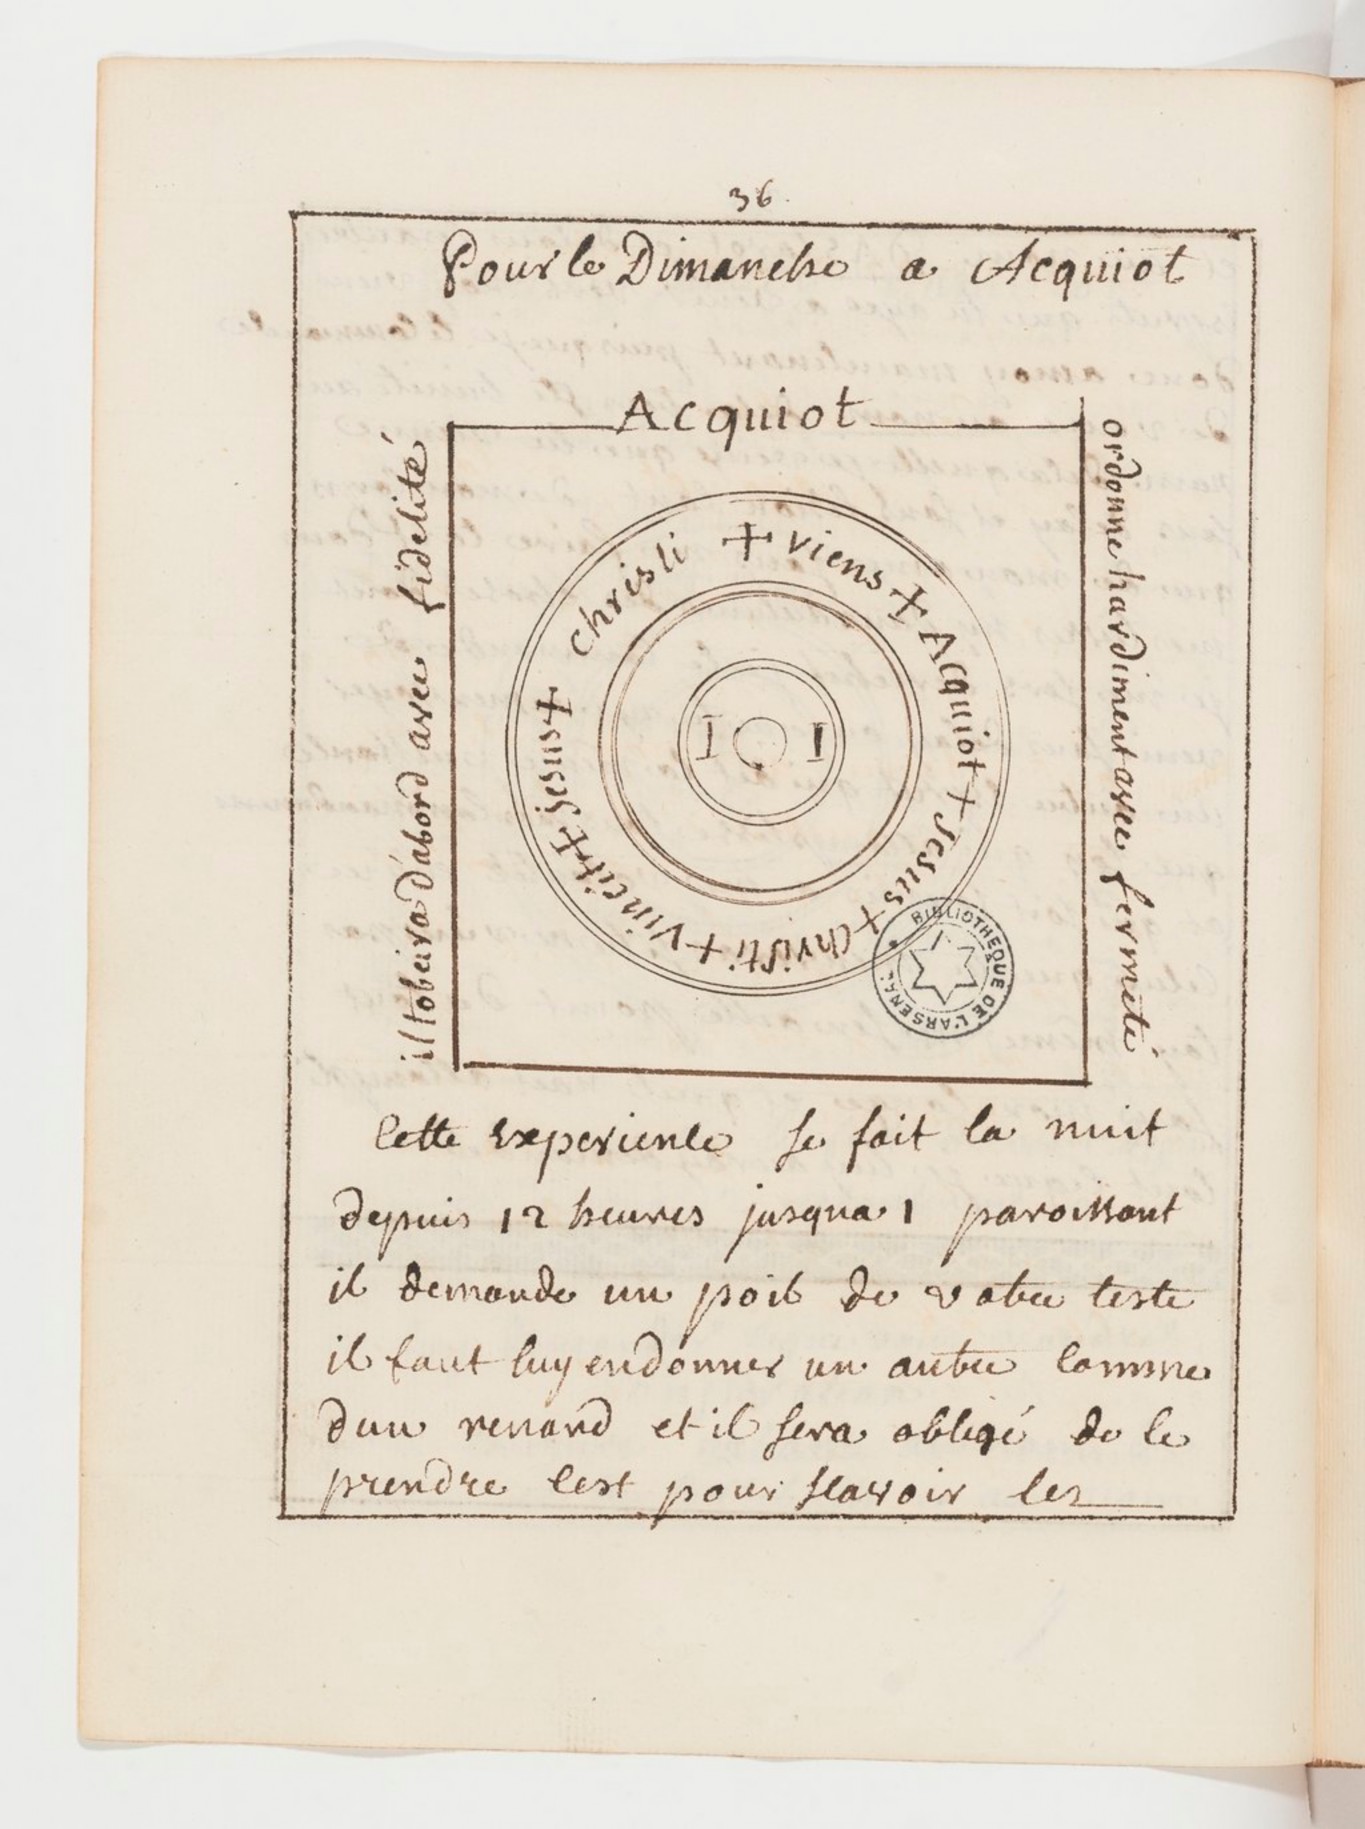 36.
Pour le Dimanche a Acquiot
Acquiot
il tobeira d'abord avec fidelité
ordonne hardiment avec fermeté
+ viens + Acquiot + Jesus + Christi + Vincit + Jesus + Christi
I I
BIBLIOTHEQUE DE L'ARSENAL
Cette experience se fait la nuit
depuis 12 heures jusqua 1 paroissant
il demande un poil de votre teste
il faut luy en donner un autre comme
dun renard et il sera obligé de le
prendre cest pour scavoir les